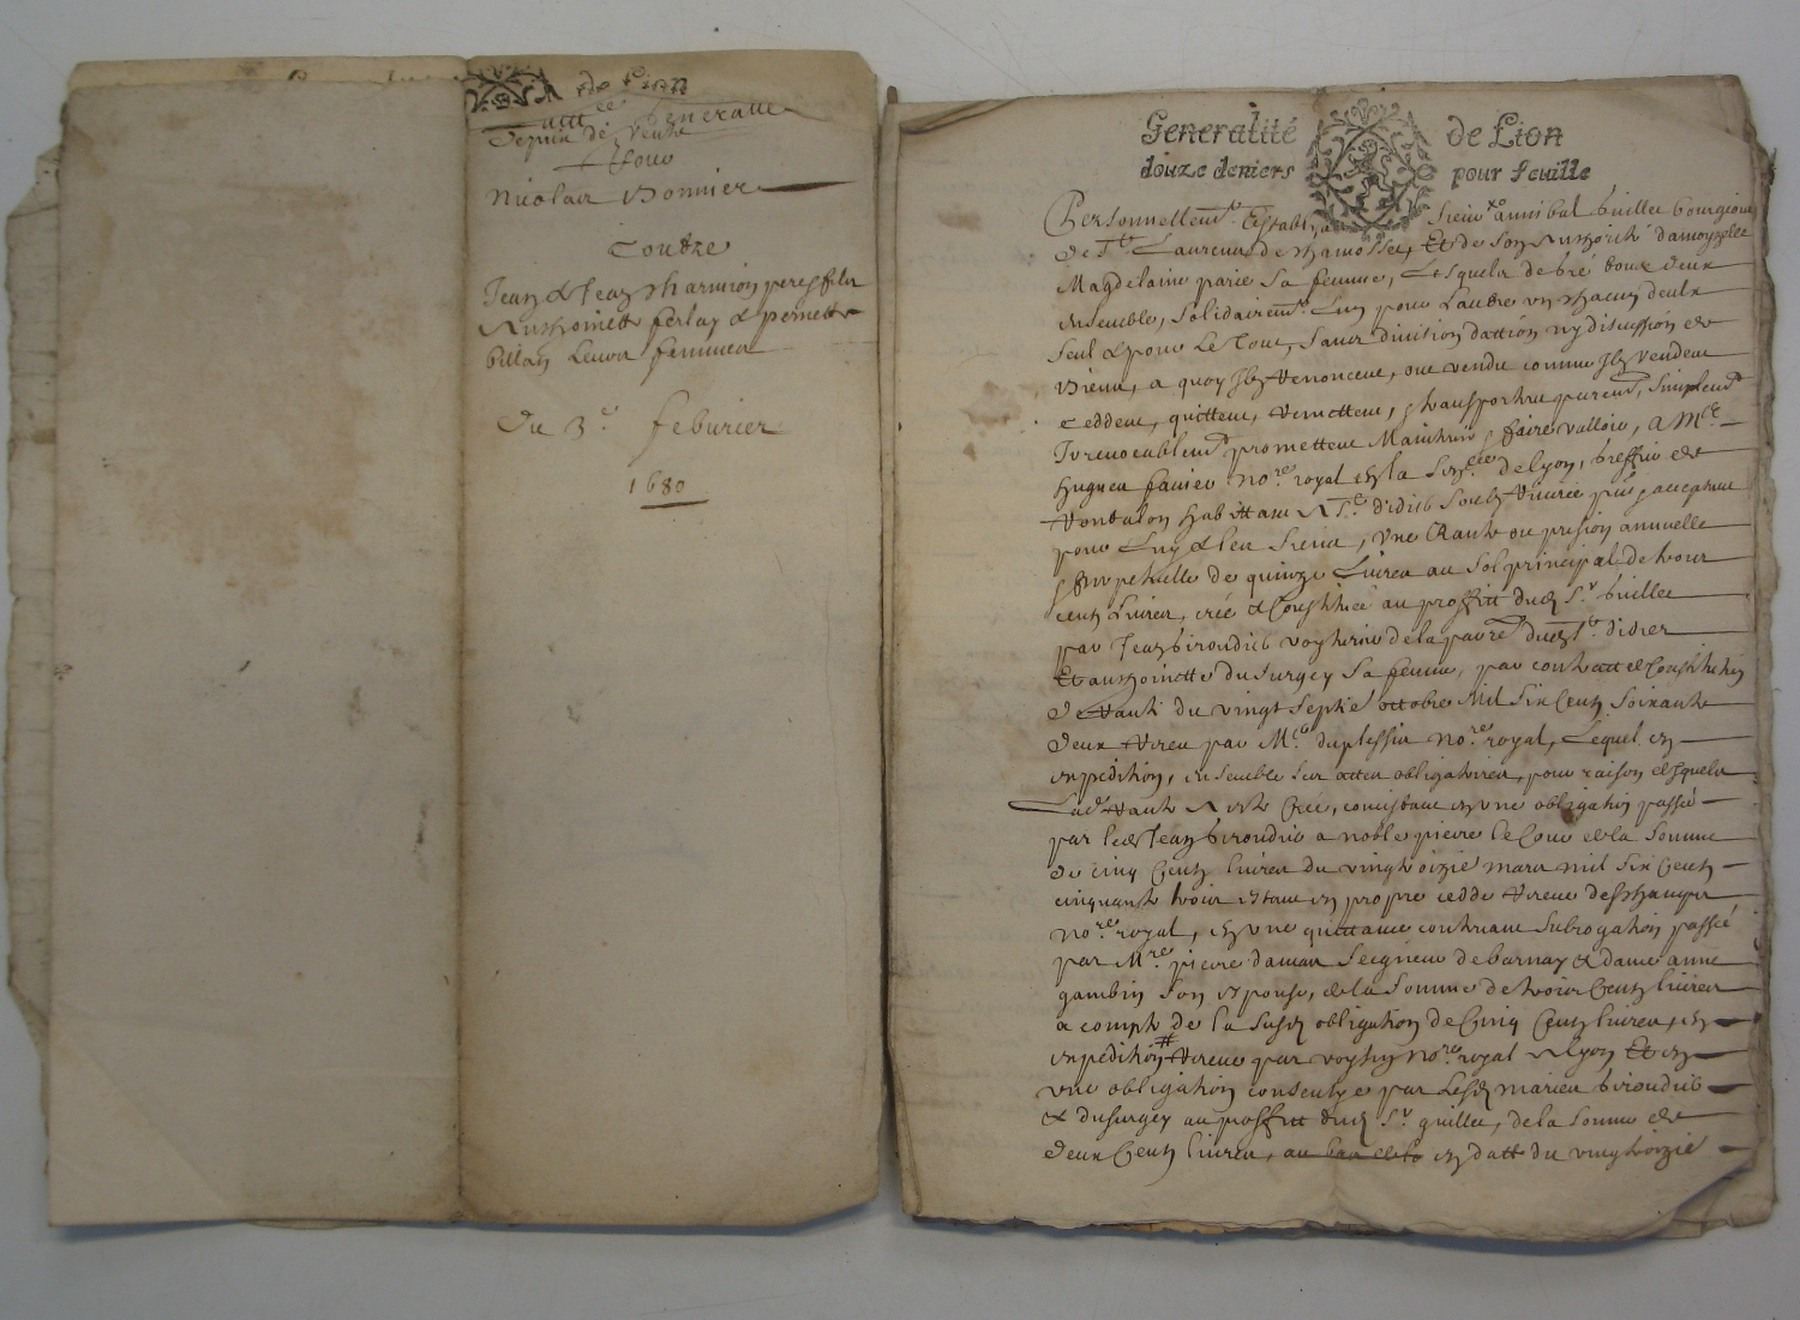 de Lion
generalle
de vente
Pour
Nicolas Bonnier
Contre
Jean & Jean Charmion pere & filz
Anthoinette ferlay & pernette
pillan Leurs femmes
Du 3e feburier
1680
Generalité de Lion
douze deniers pour feuille
Personnellemt establys Sieur annibal Guillet bourgeois
de St Laurens de chamosset, Et de son authorité damoyzelle
Magdelaine parie sa femme, Lesquels de gré tous deux
ensemble, solidairemt Lun pour Lautre un chacun deulx
seul & pour Le tout, sans division daction ny discussion de
biens, a quoy Ilz renoncent, ont vendu comme Ilz vendent
ceddent, quittent, remettent, & transportent puremt, simplemt
Irrevocablemt promettent Maintenir & faire valloir, a Me
hugues no.re royal en la de Lyon, greffier de
habittant A St didier soubz riverie & acceptant
pour Luy & les siens, une Rante ou pension annuelle
& perpetuelle de quinze Livres au sol principal de trois
cens Livres, crée & constituée au proffitt dud Sr Guillet
par Jean de la paroisse dud St didier
Et anthoinette du surgey sa femme, par contract de constitution
de rante du vingt septie octobre mil six cens soixante
deux receu par Me duplessis no.re royal, Lequel en
expedition, ensemble les actes obligatoires, pour raison desquels
Lade rante A esté crée, consistant en une obligation passée
par led Jean a noble pierre de la somme
de cinq cens livres du vingtroizie mars mil six cens
cinquante trois estant en propre cedde receue
no.re royal, en une quittance contenant subrogation passée
par Mre pierre damas seigneur de barnay & dame anne
gambin son espouse, de la somme de trois cens livres
a compte de la susd obligation de cinq cens livres, en
expedition receue par no.re royal A Lyon Et en
une obligation consentye par Lesd mariez
& dusurgey au proffitt dud Sr guillet, de la somme de
deux cens livres, en datte du vingtroizie